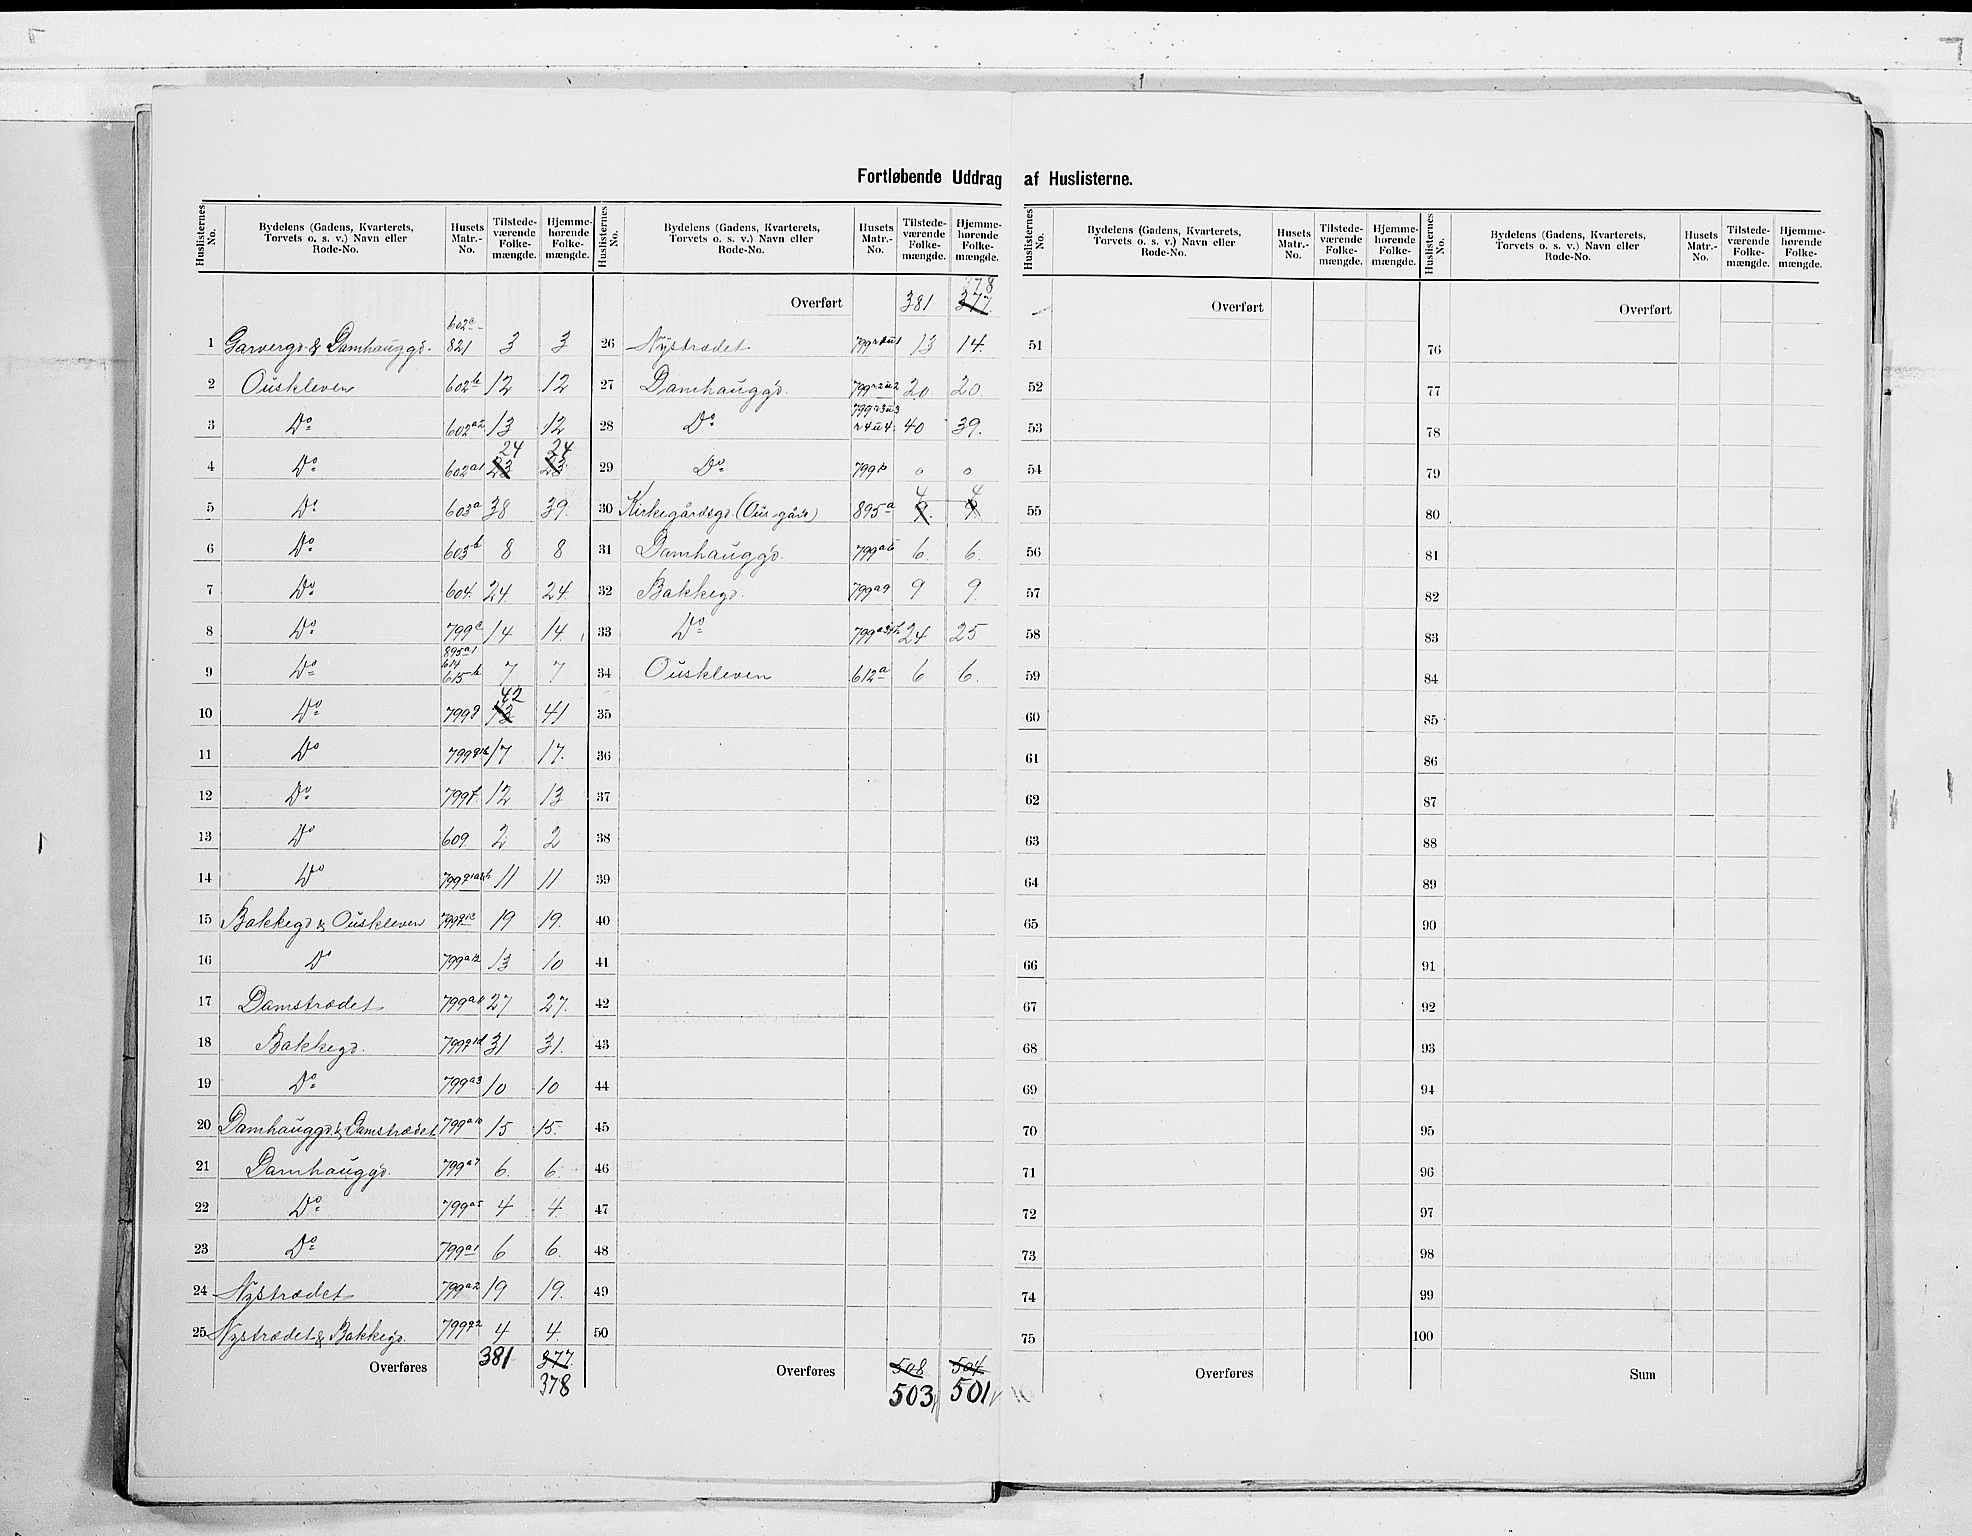 Fortløbende Uddrag af Huslisterne.
Huslisternes No. | Bydelens (Gadens, Kvarterets, Torvets o. s. v.) Navn eller Rode-No. | Husets Matr.-No. | Tilstedeværende Folkemængde. | Hjemmehørende Folkemængde.
1 Garvergd. & Damhauggd. 602c 821 3 3
2 Ouskleven 602b 12 12
3 Do 602a2 13 12
4 Do 602a1 23 24 23 24
5 Do 603a 38 39.
6 Do 603b 8 8
7 Do 604. 24. 24.
8 Do 799c 14 14.
9 Do 895a1 614 615b 7 7
10 Do 799g 42 41
11 Do 17 17.
12 Do 799f. 12 13
13 Do 609. 2 2
14 Do 11 11
15 Bakkegd & Ouskleven 19 19.
16 Do 799a12 13 10
17 Damstrædet 27 27.
18 Bakkegd. 31 31.
19 Do 799a3 10 10
20 Damhauggd. & Damstrædet 799a10 15 15.
21 Damhauggd. 799a7 6. 6.
22 Do 799a5 4 4.
23 Do 799a1 6 6.
24 Nystrædet 799a2 19 19.
25 Nystrædet & Bakkegd. 4 4.
Overføres 381 377. 378
Huslisternes No. | Bydelens (Gadens, Kvarterets, Torvets o. s. v.) Navn eller Rode-No. | Husets Matr.-No. | Tilstedeværende Folkemængde. | Hjemmehørende Folkemængde.
Overført 381 377. 378
26 Nystrædet 13 14.
27 Damhauggd. 20. 20.
28 Do 40 39.
29 Do 0 0
30 Kirkegårdsgd. (Ous gade) 895a 9. 4 9. 4
31 Damhauggd. 799a6 6. 6.
32 Bakkegd. 799a9 9 9.
33 Do 24 25
34 Ouskleven 612a 6 6.
35
36
37
38
39
40
41
42
43
44
45
46
47
48
49
50
Overføres 508 504.
503 501
Huslisternes No. | Bydelens (Gadens, Kvarterets, Torvets o. s. v.) Navn eller Rode-No. | Husets Matr.-No. | Tilstedeværende Folkemængde. | Hjemmehørende Folkemængde.
Overført
51
52
53
54
55
56
57
58
59
60
61
62
63
64
65
66
67
68
69
70
71
72
73
74
75
Overføres
Huslisternes No. | Bydelens (Gadens, Kvarterets, Torvets o. s. v.) Navn eller Rode-No. | Husets Matr.-No. | Tilstedeværende Folkemængde. | Hjemmehørende Folkemængde.
Overført
76
77
78
79
80
81
82
83
84
85
86
87
88
89
90
91
92
93
94
95
96
97
98
99
100
Sum